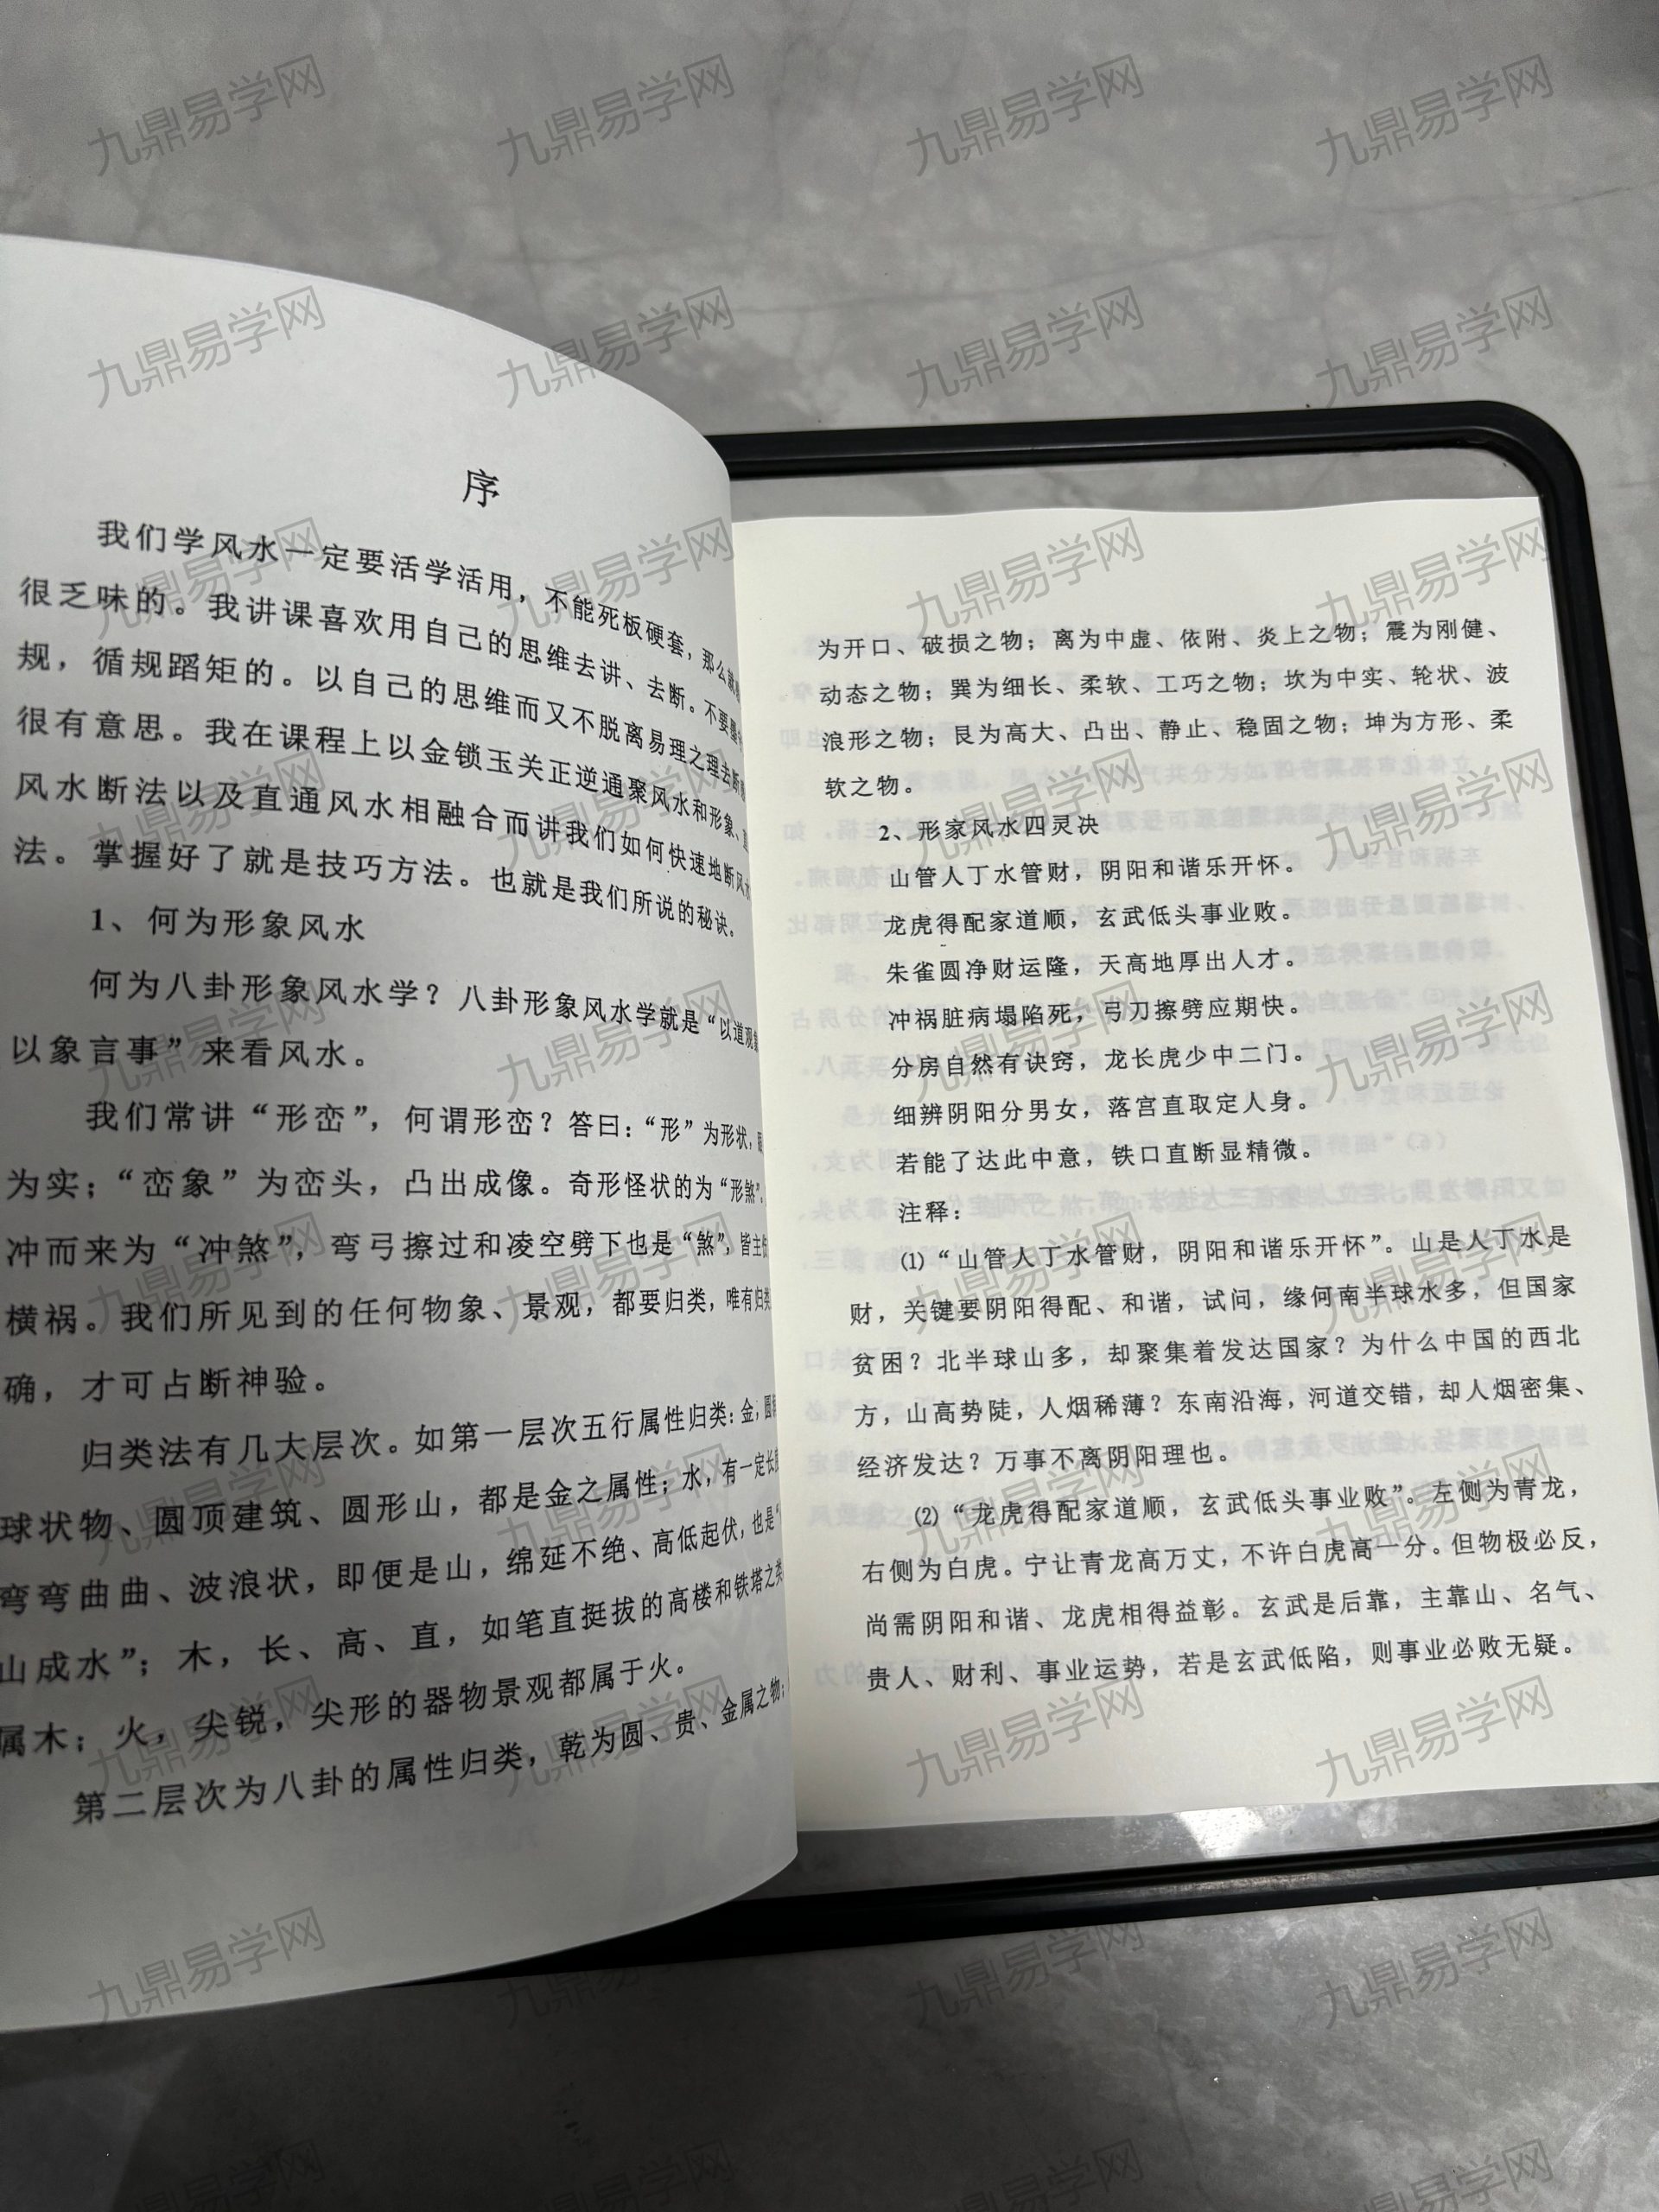 序
我们学风水一定要活学活用，不能死板硬套，那么就
很乏味的。我讲课喜欢用自己的思维去讲、去断。不要墨
规，循规蹈矩的。以自己的思维而又不脱离易理之理去断
很有意思。我在课程上以金锁玉关正逆通聚风水和形象、
风水断法以及直通风水相融合而讲我们如何快速地断风水
法。掌握好了就是技巧方法。也就是我们所说的秘诀。
1、何为形象风水
何为八卦形象风水学？八卦形象风水学就是“以道观
以象言事”来看风水。
我们常讲“形峦”，何谓形峦？答曰：“形”为形状，
为实；“峦象”为峦头，凸出成像。奇形怪状的为“形煞”，
冲而来为“冲煞”，弯弓擦过和凌空劈下也是“煞”，皆主
横祸。我们所见到的任何物象、景观，都要归类，唯有归类
确，才可占断神验。
归类法有几大层次。如第一层次五行属性归类：金，圆
球状物、圆顶建筑、圆形山，都是金之属性；水，有一定长
弯弯曲曲、波浪状，即便是山，绵延不绝、高低起伏，也是“
山成水”；木，长、高、直，如笔直挺拔的高楼和铁塔之类
属木；火，尖锐，尖形的器物景观都属于火。
第二层次为八卦的属性归类，乾为圆、贵、金属之物；
为开口、破损之物；离为中虚、依附、炎上之物；震为刚健、
动态之物；巽为细长、柔软、工巧之物；坎为中实、轮状、波
浪形之物；艮为高大、凸出、静止、稳固之物；坤为方形、柔
软之物。
2、形家风水四灵决
山管人丁水管财，阴阳和谐乐开怀。
龙虎得配家道顺，玄武低头事业败。
朱雀圆净财运隆，天高地厚出人才。
冲祸脏病塌陷死，弓刀擦劈应期快。
分房自然有诀窍，龙长虎少中二门。
细辨阴阳分男女，落宫直取定人身。
若能了达此中意，铁口直断显精微。
注释：
⑴“山管人丁水管财，阴阳和谐乐开怀”。山是人丁水是
财，关键要阴阳得配、和谐，试问，缘何南半球水多，但国家
贫困？北半球山多，却聚集着发达国家？为什么中国的西北
方，山高势陡，人烟稀薄？东南沿海，河道交错，却人烟密集、
经济发达？万事不离阴阳理也。
⑵“龙虎得配家道顺，玄武低头事业败”。左侧为青龙，
右侧为白虎。宁让青龙高万丈，不许白虎高一分。但物极必反，
尚需阴阳和谐、龙虎相得益彰。玄武是后靠，主靠山、名气、
贵人、财利、事业运势，若是玄武低陷，则事业必败无疑。
九鼎易学网